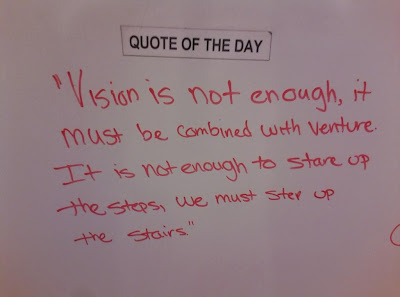 QUOTE OF THE DAY
"Vision is not enough, it
must be combined with venture.
It is not enough to stare up
the steps, we must step up
the stairs."